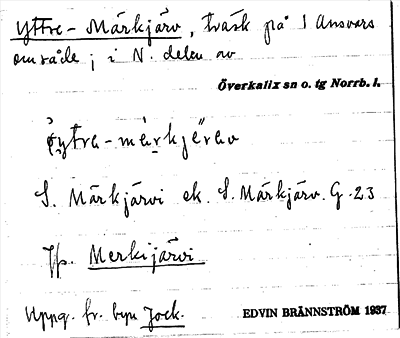 Yttre-Märkjärv, träsk på J Ansvars
område; i N. delen av
Överkalix sn o. tg Norrb. l.
ytra-märkjärav
S. Märkjärvi ek. S. Märkjärv. G. 23
Jfr. Merkijärvi
Uppg. fr. byn Jock.
EDVIN BRÄNNSTRÖM 1937